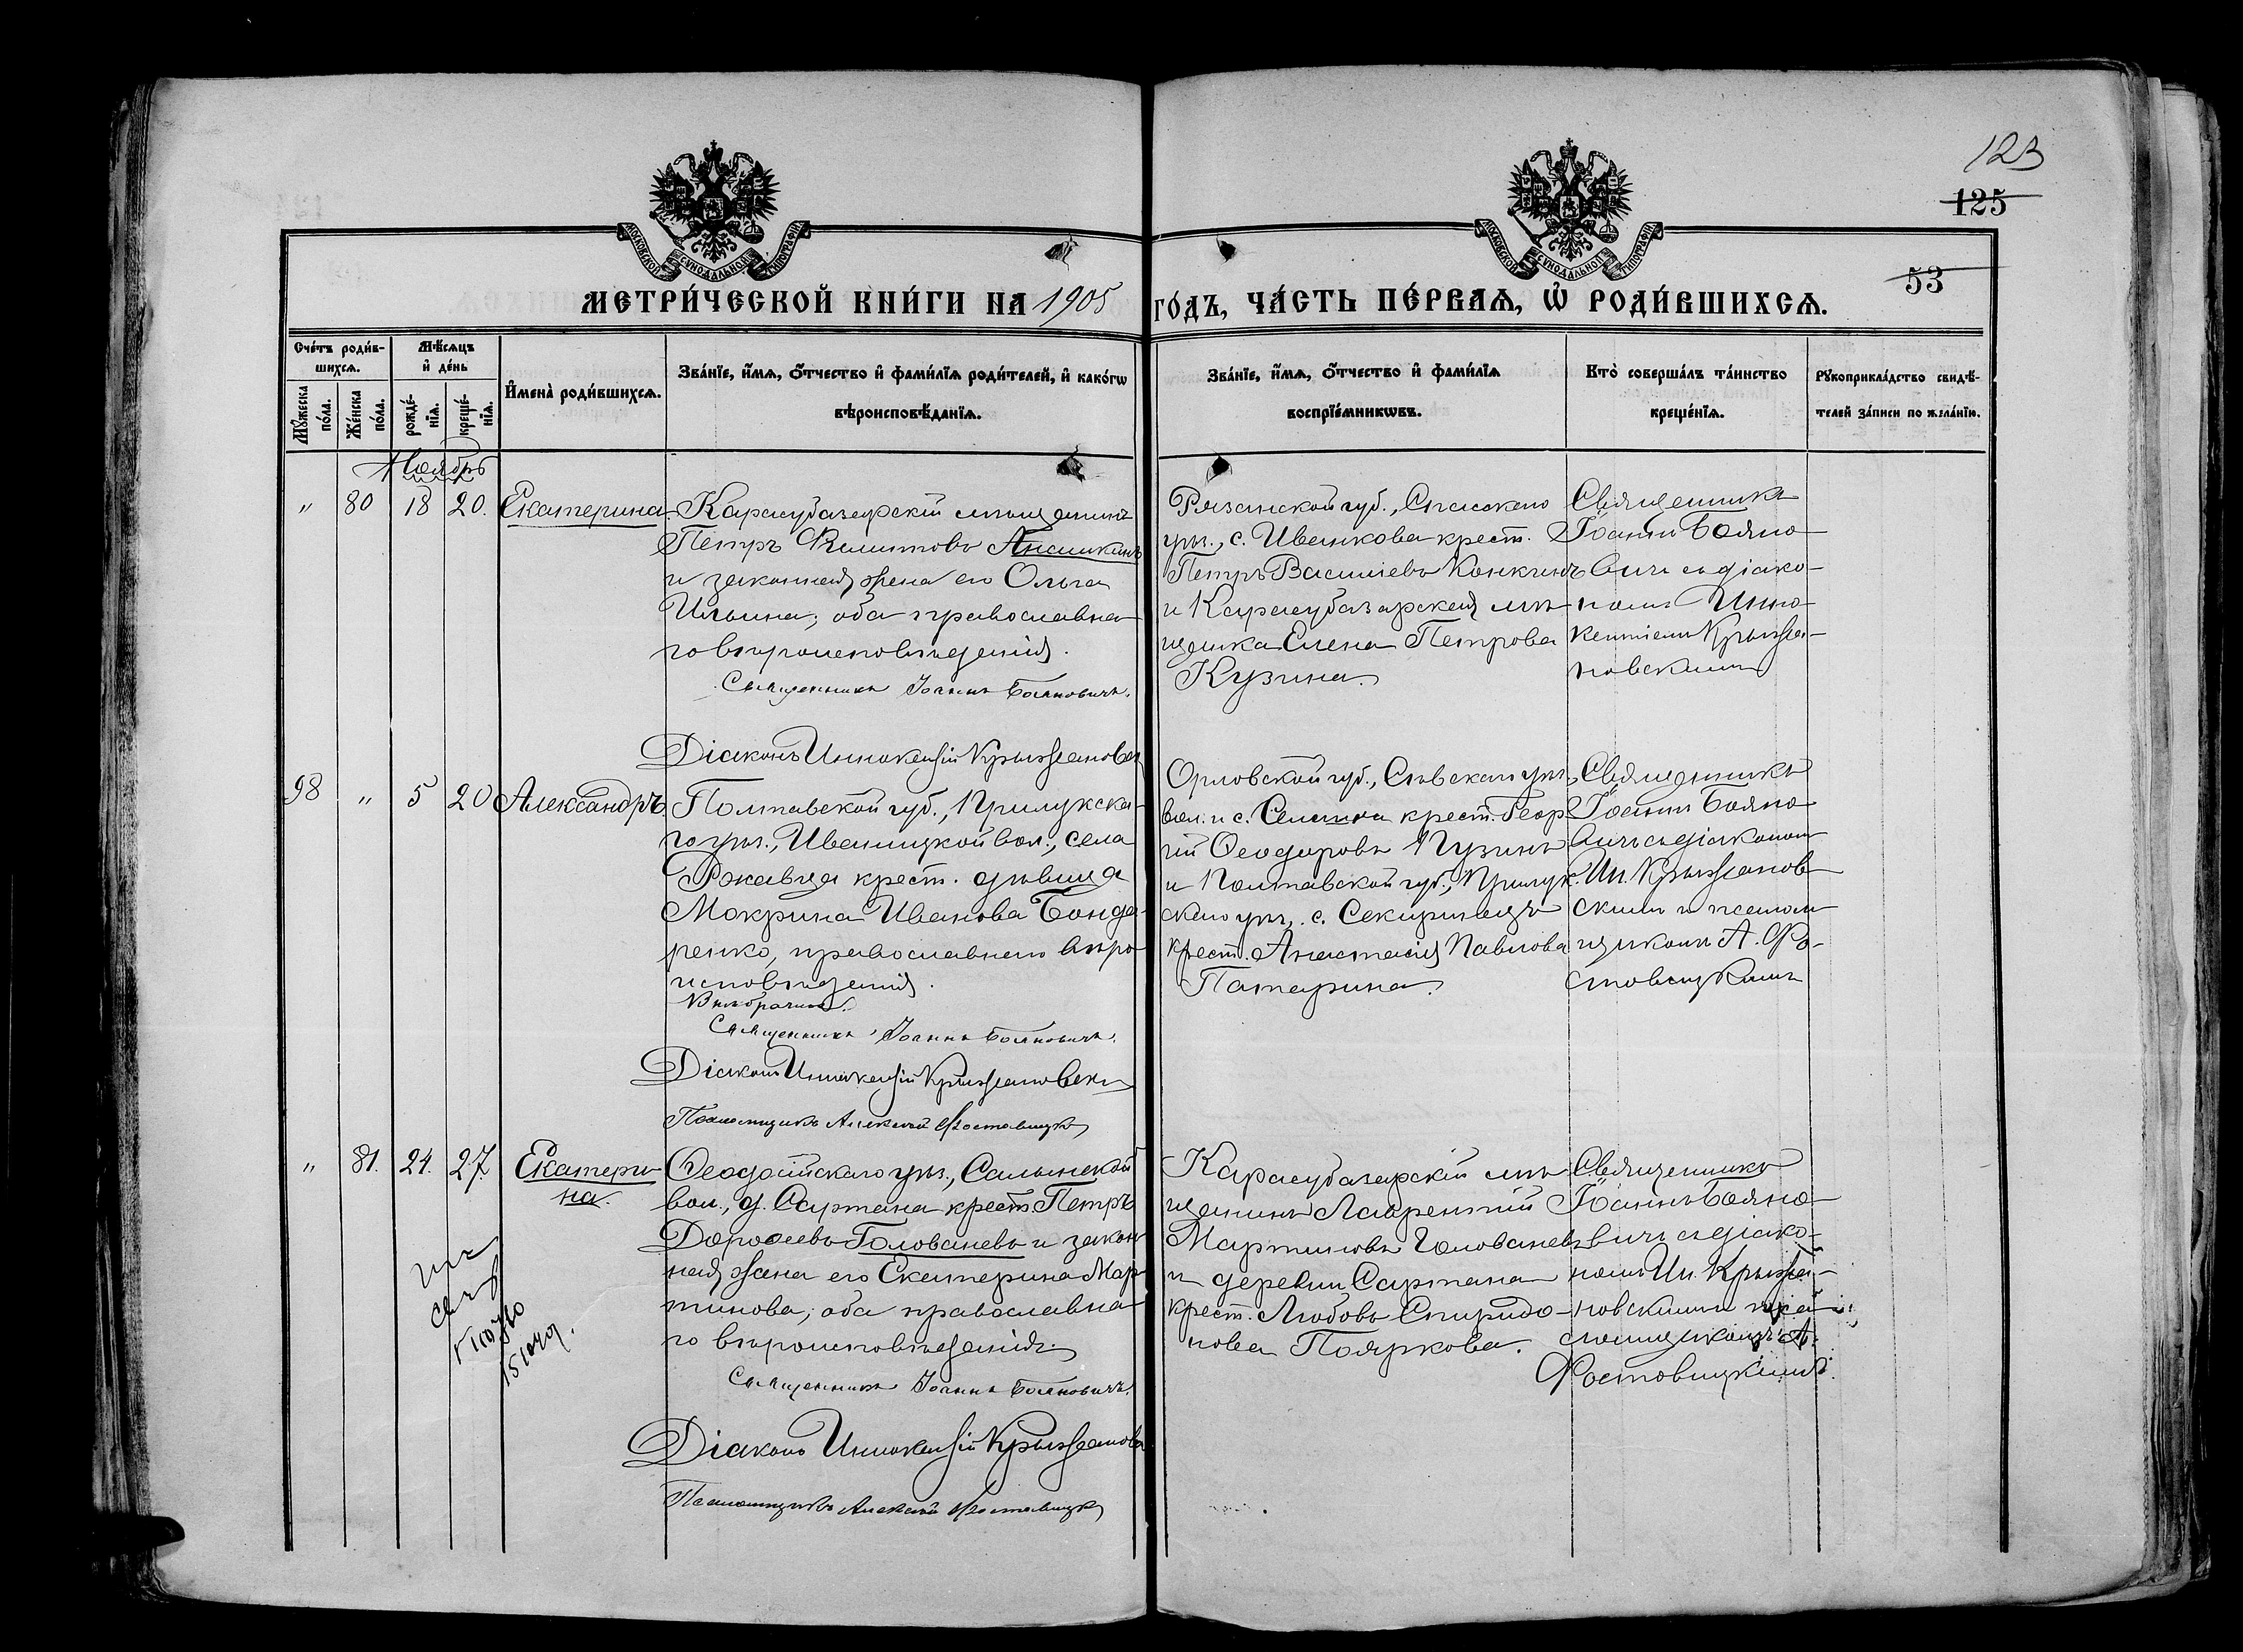 123
125
53
МОСКОВСКОЙ СѴНОДАЛЬНОЙ ТИПОГРАФІИ
МОСКОВСКОЙ СѴНОДАЛЬНОЙ ТИПОГРАФІИ
МЕТРИ́ЧЕСКОЙ КНИ́ГИ НА 1905 ГО́ДЪ, ЧА́СТЬ ПЕ́РВАѦ, Ѡ҆ РОДИ́ВШИХСѦ.
Сче́тъ роди́в-
шихсѧ.
Мꙋ́жеска по́ла.
Же́нска по́ла.
Мѣ́сѧцъ
и҆ де́нь
рожде́-
нїѧ.
креще́-
нїѧ.
И҆мена̀ роди́вшихсѧ.
Зва́нїе, и҆́мѧ, ѻ҆́тчество и҆ фами́лїѧ роди́телей, и҆ како́гѡ
вѣроисповѣ́данїѧ.
Зва́нїе, и҆́мѧ, ѻ҆́тчество и҆ фами́лїѧ
воспрїе́мникѡвъ.
Кто̀ соверша́лъ та́инство
креще́нїѧ.
Рꙋкоприкла́дство свидѣ́-
телей за́писи по жела́нїю.
Ноябрь
" 80 18 20. Екатерина
Карасубазарскій мѣщанинъ
Петръ Филиповъ Ансимкинъ
и законная жена его Ольга
Ильина; оба православна-
го вѣроисповѣданія.
Священникъ Іоаннъ Бояновичъ.
Діаконъ Иннокентій Крыжановск
Рязанской губ., Спасскаго
уѣз., с. Иванкова крест.
Петръ Василіевъ Конкинъ
и Карасубазарская мѣ-
щанка Елена Петрова
Кузина.
Священникъ
Іоаннъ Бояно-
вичъ съ діако-
номъ Инно-
кентіемъ Крыжа-
новскимъ
98 " 5 20 Александръ.
Полтавской губ., Прилукска-
го уѣз., Иваницкой вол., села
Ржавца крест. дѣвица
Мокрина Иванова Бонда-
ренко, православнаго вѣро-
исповѣданія.
Внѣбрачный.
Священникъ Іоаннъ Бояновичъ.
Діаконъ Иннокентій Крыжановскі
Псаломщикъ Алексѣй Ростовицкі
Орловской губ., Сѣвскаго уѣз.,
вол. и с. Селична крест. Геор-
гій Ѳеодоровъ Пузинъ
и Полтавской губ., Прилук-
скаго уѣз., с. Секиринецъ
крест. Анастасія Павлова
Патерина.
Священникъ
Іоаннъ Бояно-
вичъ съ діакономъ
Ин. Крыжанов-
скимъ и псалом-
щикомъ А. Ро-
стовицкимъ
" 81. 24. 27. Екатери-
на.
Ѳеодосійскаго уѣз., Салынской
вол., д. Сартана крест. Петръ
Дороѳеевъ Голованевъ и закон-
ная жена его Екатерина Мар-
тинова; оба православна-
го вѣроисповѣданія.
Священникъ Іоаннъ Бояновичъ.
Діаконъ Иннокентій Крыжановск
Псаломщикъ Алексѣй Ростовицкі
Карасубазарскій мѣ-
щанинъ Лаврентій
Мартиновъ Голованевъ
и деревни Сартана
крест. Любовь Спиридо-
нова Пояркова.
Священникъ
Іоаннъ Бояно-
вичъ съ діако-
номъ Ин. Крыжа-
новскимъ и
А.
Ростовицкимъ.